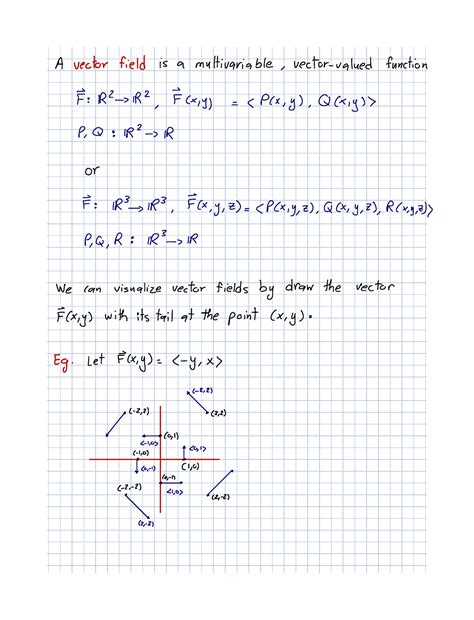 A vector field is a multivariable, vector-valued function
F⃗: ℝ² → ℝ², F⃗(x,y) = <P(x,y), Q(x,y)>
P, Q : ℝ² → ℝ
or
F⃗: ℝ³ → ℝ³, F⃗(x,y,z) = <P(x,y,z), Q(x,y,z), R(x,y,z)>
P,Q,R : ℝ³ → ℝ
We can visualize vector fields by draw the vector
F⃗(x,y) with its tail at the point (x,y).
Eg. Let F⃗(x,y) = <-y, x>
(-2,2)
(-2,2) (2,2)
(0,1)
<-1,0> <0,1>
(-1,0)
(0,-1) (1,0)
(0,-1)
(-2,-2) <1,0>
(2,-2)
(2,-2)